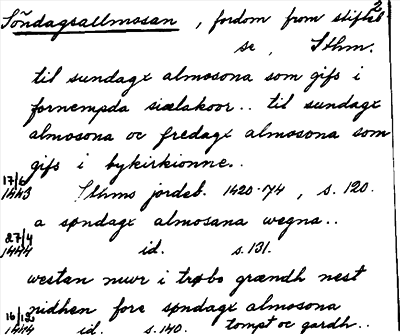 Söndagsallmosan, fordom from stiftels 2
se, Sthm.
til sundagx almosona som gifs i
fornempda siælakoor.. til sundagx
almosona oc fredagx almosona som
gifs i bykirkionne..
17/6 1443 Sthms jordeb. 1420-74, s. 120.
a søndagx almosana wegna..
27/4 1444 id. s. 131.
westan mwr i trøbo grændh nest
nidhen fore søndagx almosona
16/12 1444 id. s. 140. tompt oc gardh..